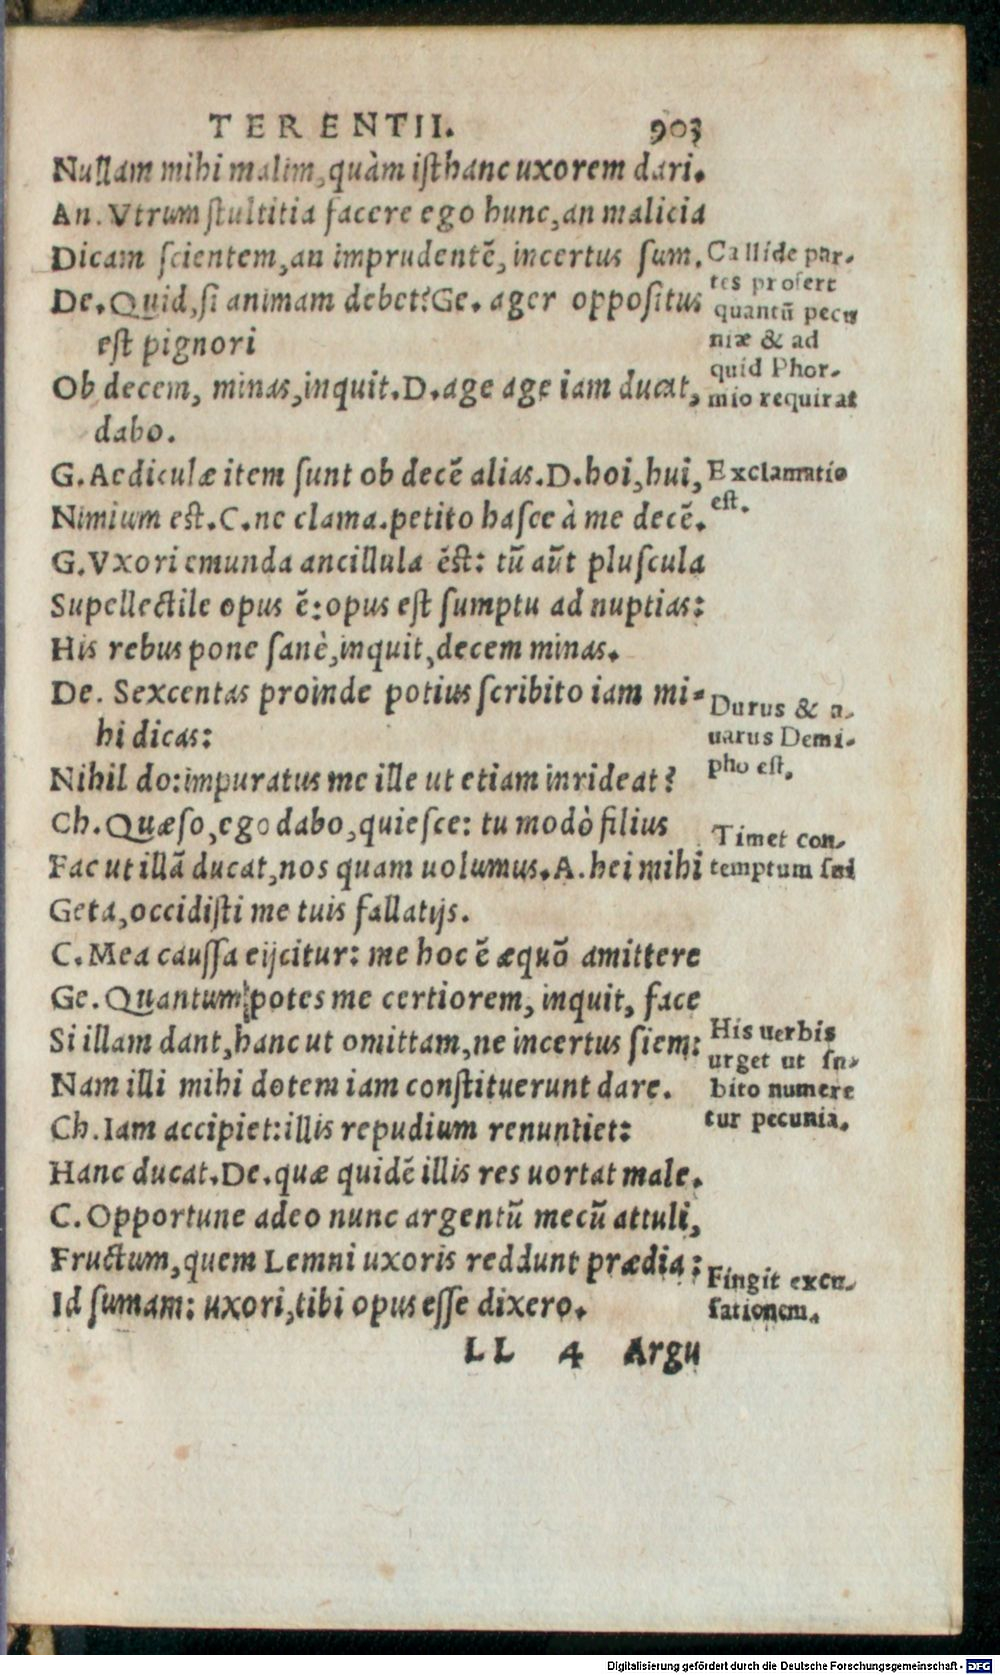 TERENTII. 903
Nullam mihi malim, quàm isthanc uxorem dari.
An. Vtrum stultitia facere ego hunc, an malicia
Dicam scientem, an imprudentē, incertus sum.
De. Quid, si animam debet? Ge. ager oppositus
est pignori
Ob decem, minas, inquit. D. age age iam ducat,
dabo.
Callide par-
tes profert
quantū pecu
niæ & ad
quid Phor-
mio requirat
G. Aediculæ item sunt ob decē alias. D. hoi, hui,
Nimium est. C. ne clama. petito hasce à me decē.
Exclamatio
est.
G. Vxori emunda ancillula ēst: tū aūt pluscula
Supellectile opus ē: opus est sumptu ad nuptias:
His rebus pone sanè, inquit, decem minas.
De. Sexcentas proinde potius scribito iam mi-
hi dicas:
Nihil do: impuratus me ille ut etiam inrideat?
Durus & a-
uarus Demi-
pho est.
Ch. Quæso, ego dabo, quiesce: tu modò filius
Fac ut illā ducat, nos quam uolumus. A. hei mihi
Timet con-
temptum sui
Geta, occidisti me tuis fallatijs.
C. Mea caussa eijcitur: me hoc ē æquō amittere
Ge. Quantum potes me certiorem, inquit, face
Si illam dant, hanc ut omittam, ne incertus siem:
Nam illi mihi dotem iam constituerunt dare.
Ch. Iam accipiet: illis repudium renuntiet:
His uerbis
urget ut su-
bito numere
tur pecunia.
Hanc ducat. De. quæ quidē illis res uortat male.
C. Opportune adeo nunc argentū mecū attuli,
Fructum, quem Lemni uxoris reddunt prædia:
Id sumam: uxori, tibi opus esse dixero.
Fingit excu-
sationem.
LL 4 Argu
Digitalisierung gefördert durch die Deutsche Forschungsgemeinschaft - DFG